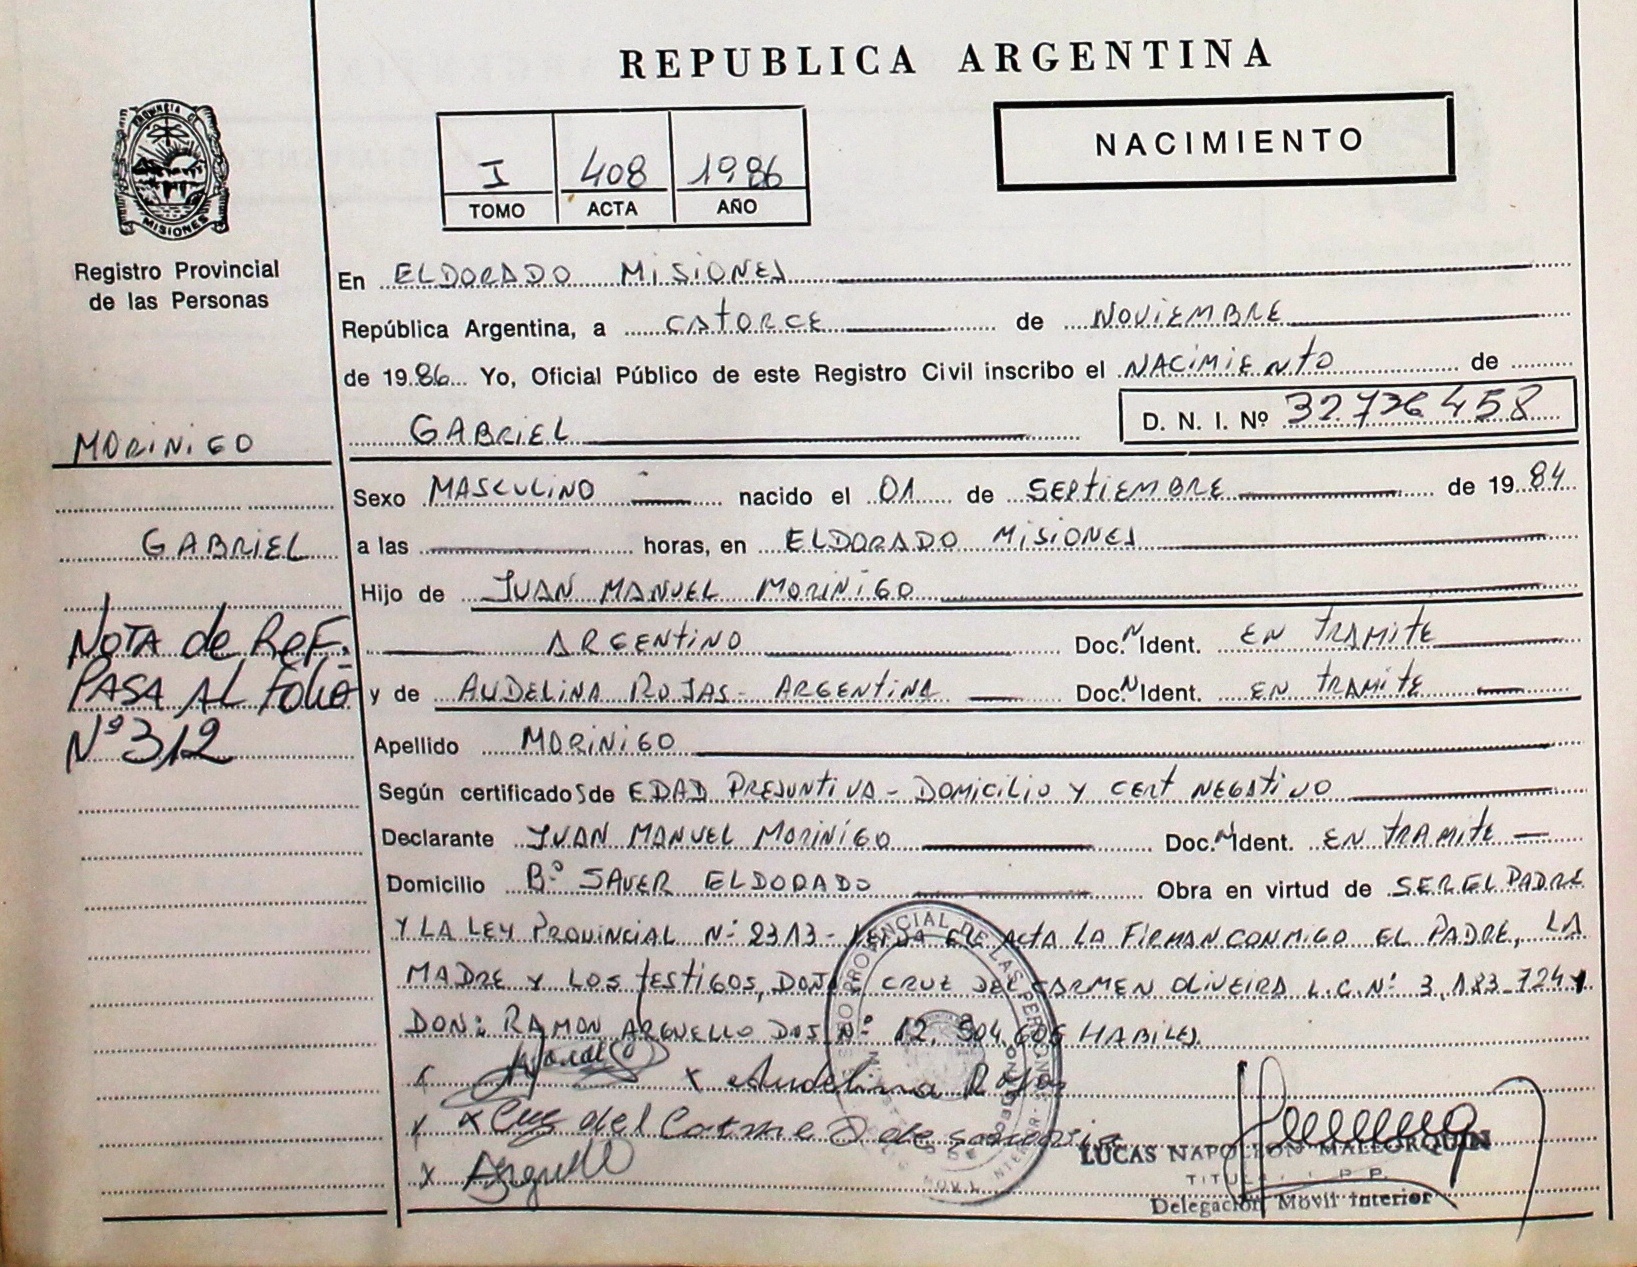 REPUBLICA ARGENTINA
PROVINCIA DE
MISIONES
Registro Provincial
de las Personas
I 408 1986
TOMO ACTA AÑO
NACIMIENTO
En ELDORADO MISIONES
República Argentina, a CATORCE de NOVIEMBRE
de 1986 Yo, Oficial Público de este Registro Civil inscribo el NACIMIENTO de
GABRIEL D. N. I. Nº 32736458
MORINIGO
GABRIEL
NOTA de REF.
PASA AL FOLIO
Nº 312
Sexo MASCULINO nacido el 01 de SEPTIEMBRE de 1984
a las horas, en ELDORADO MISIONES
Hijo de JUAN MANUEL MORINIGO
ARGENTINO Doc. N Ident. EN TRAMITE
y de AUDELINA ROJAS - ARGENTINA Doc. N Ident. EN TRAMITE
Apellido MORINIGO
Según certificado S de EDAD PRESUNTIVA - DOMICILIO Y CERT NEGATIVO
Declarante JUAN MANUEL MORINIGO Doc. N Ident. EN TRAMITE
Domicilio Bº SAUER ELDORADO Obra en virtud de SER EL PADRE
Y LA LEY PROVINCIAL Nº 2313 - LEIDA EL ACTA LA FIRMAN CONMIGO EL PADRE, LA
MADRE Y LOS TESTIGOS, DOÑA CRUZ DEL CARMEN OLIVEIRA L.C. Nº 3.183.724 Y
DON: RAMON ARGUELLO DNI Nº 12.904.606 HABILES.
x x Audelina Rojas
x Cruz del Carmen O de
x Arguello
LUCAS NAPOLEON MALLORQUIN
Delegación Movil Interior